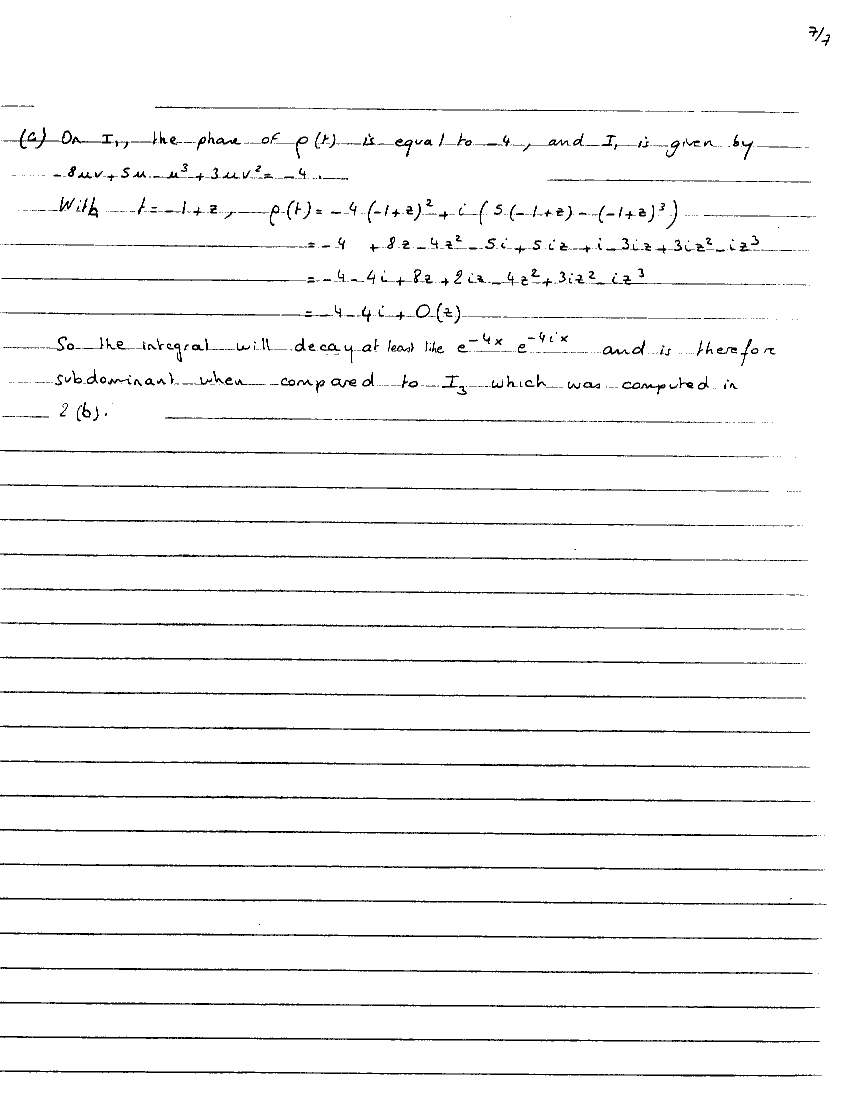 7/7
(c) On I₁, the phase of ρ(t) is equal to -4, and I₁ is given by
-8uv + 5u - u³ + 3uv² = -4.
With t = -1+z, ρ(t) = -4(-1+z)² + i(5(-1+z) - (-1+z)³)
= -4 + 8z - 4z² - 5i + 5iz + i - 3iz + 3iz² - iz³
= -4 - 4i + 8z + 2iz - 4z² + 3iz² - iz³
= -4 - 4i + O(z)
So the integral will decay at least like e^{-4x} e^{-4ix} and is therefore
subdominant when compared to I₃ which was computed in
2(b).